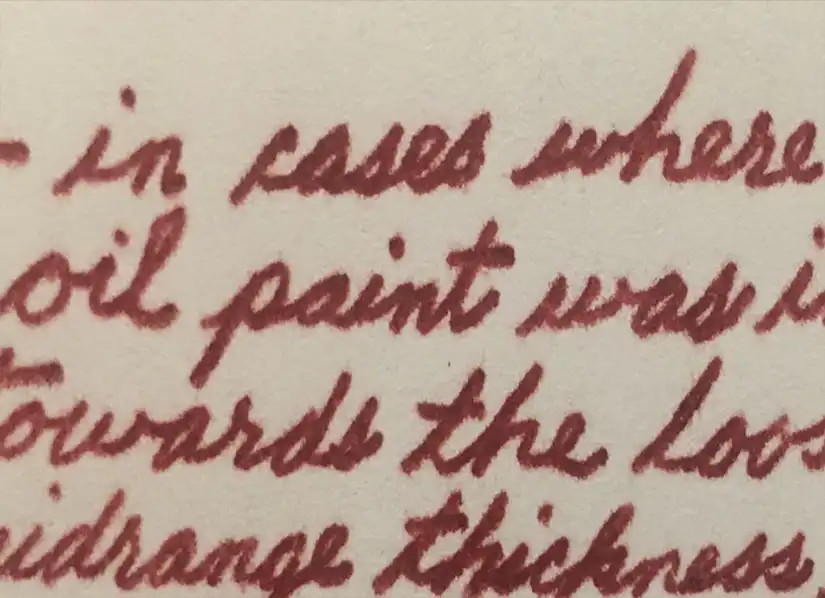 - in cases where
oil paint was i
towards the loos
idrange thickness.